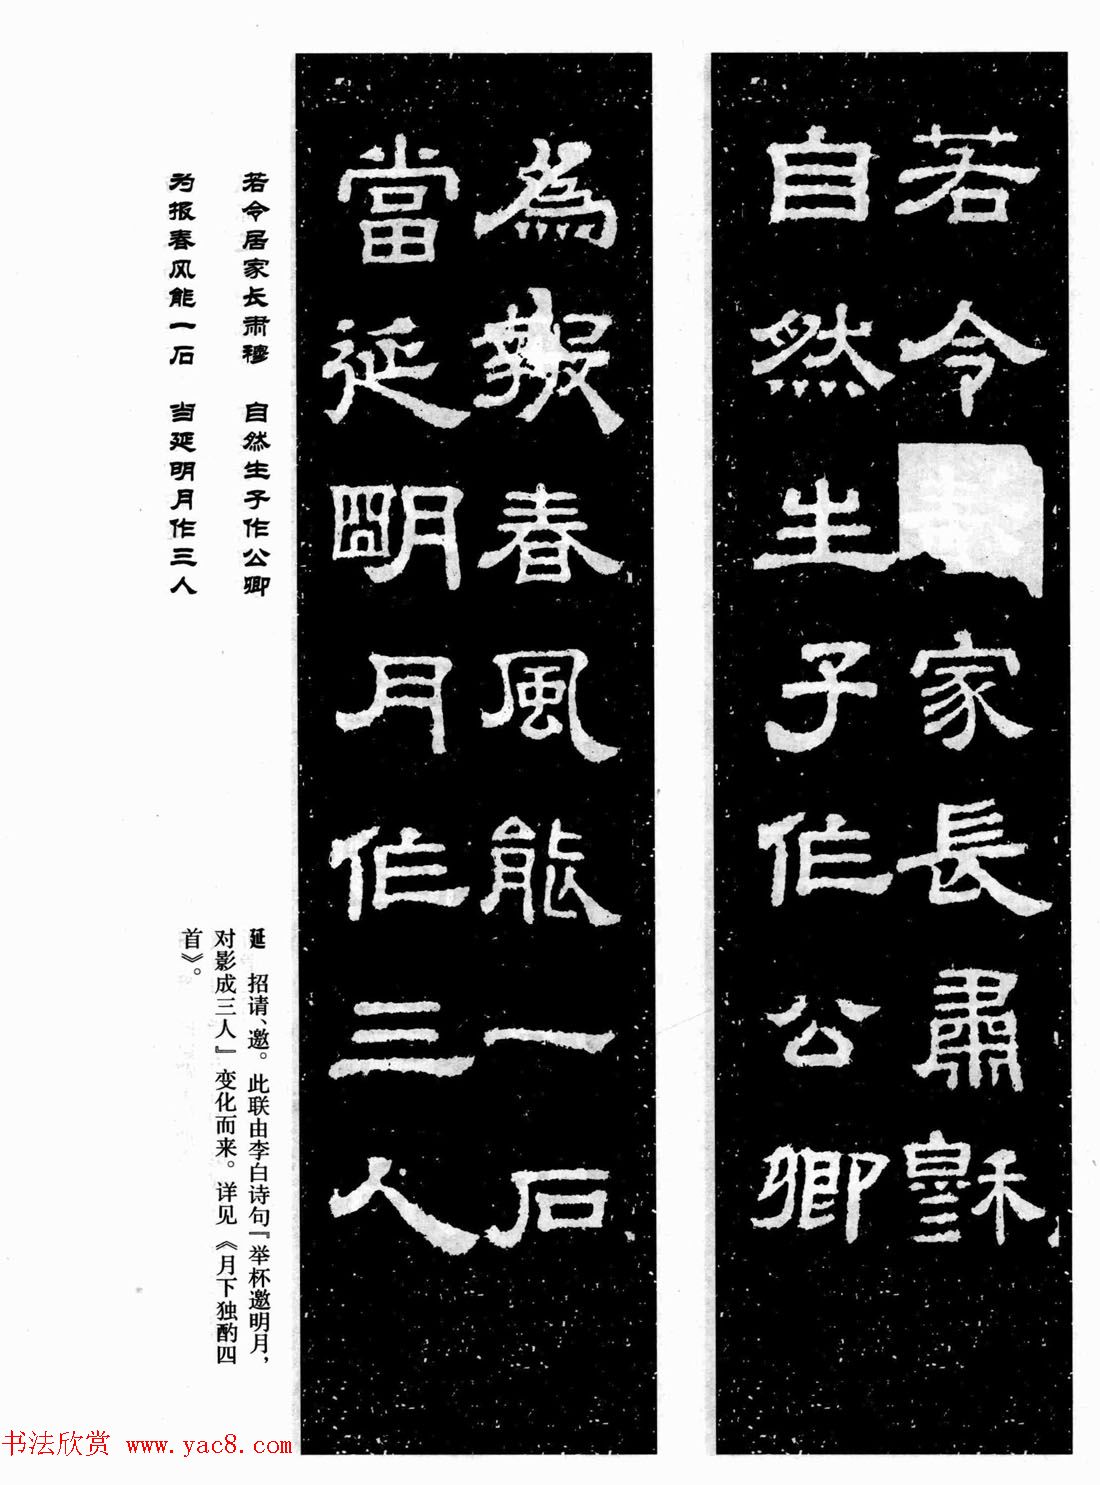 若令
家長肅穆
自然生子作公卿
為報春風能一石
當延明月作三人
若令居家长肃穆 自然生子作公卿
为报春风能一石 当延明月作三人
延 招请、邀。此联由李白诗句『举杯邀明月，
对影成三人』变化而来。详见《月下独酌四
首》。
书法欣赏 www.yac8.com